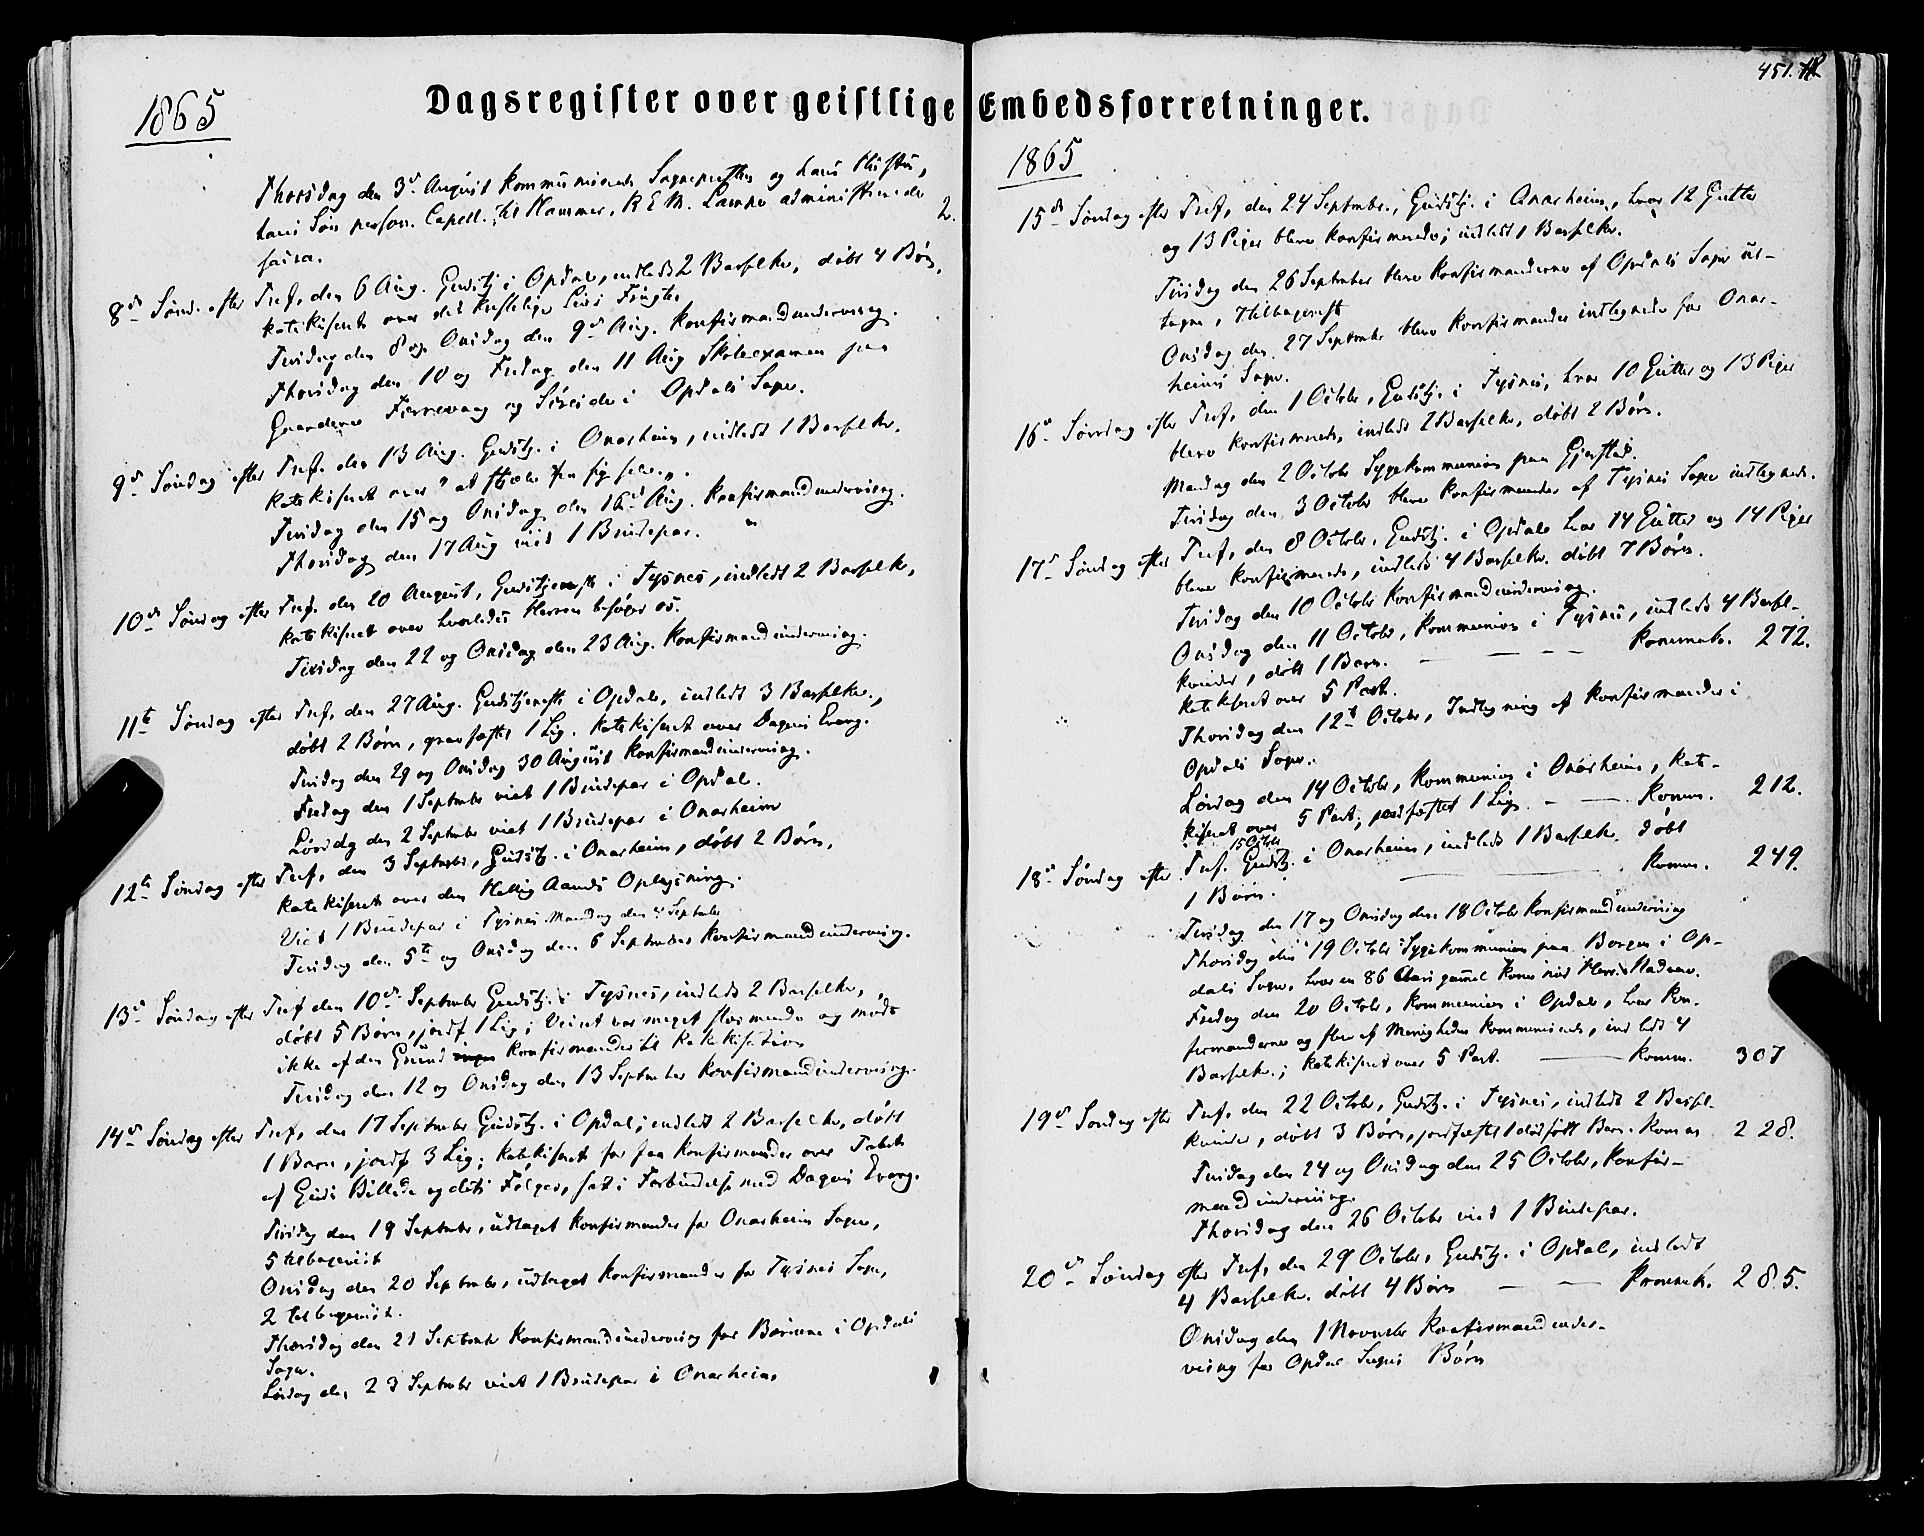 451.
Dagsregister over geistlige Embedsforretninger.
1865
Thorsdag den 3d August kommunicerede Sognepresten og hans Hustru,
hans Søn person. Capell. til Hammer, R E M. Lampe administrerede 2.
8de Sønd. efter Tref. den 6 Aug. Gudstj. i Opdal, indledt 2 Barselkv, døbt 4 Børn,
katekiseret over det kristelige Livs Frugter
Tirsdag den 8 og Onsdag den 9d Aug. Konfirmandundervisng.
Thorsdag den 10 og Fredag den 11 Aug Skoleexamen paa
Gaardene Færrevaag og i Opdals Sogn.
9d Søndag efter Tref. den 13 Aug. Gudstj. i Onarheim, indledt 1 Barselkv.
katekiseret over "at stole paa sig selv".
Tirsdag den 15 og Onsdag den 16d Aug. Konfirmandundervisng.
Thorsdag den 17 Aug viet 1 Brudepar.
10de Søndag efter Tref. den 20 August, Gudstjeneste i Tysnes, indledt 2 Barselk,
katekiseret over hvorledes Herren besøger os.
Tirsdag den 22 og Onsdag den 23 Aug. Konfirmandundervisng.
11te Søndag efter Tref. den 27 Aug. Gudstjeneste i Opdal, indledt 3 Barselkv.,
døbt 2 Børn, gravfæstet 1 Lig. katekiseret over Dagens Evang.
Tirsdag den 29 og Onsdag 30 August Konfirmandundervisng.
Fredag den 1 September viet 1 Brudepar i Opdal.
Løverdag den 2 September viet 1 Brudepar i Onarheim
12te Søndag efter Tref, den 3 September, Gudstj. i Onarheim, døbt 2 Børn,
katekiseret over den Hellig Aands Oplysning.
Viet 1 Brudepar i Tysnes Mandag den 4 Septembr
Tirsdag den 5te og Onsdag den 6 September Konfirmandundervisng.
13d Søndag efter Tref den 10de September Gudstj. i Tysnes, indledt 2 Barselkv,
døbt 5 Børn, jordf 1 Lig; Veiret var meget stormende og mødte
ikke af den Grund Konfirmander til Katekisation
Tirsdag den 12 og Onsdag den 13 September Konfirmandundervisng.
14d Søndag efter Tref, den 17 September Gudstj. i Opdal; indledt 2 Barselkv, døbt
1 Barn, jordf 3 Lig; katekiseret for faa Konfirmander over Tabet
af Guds Billede og dets Følger, sat i Forbindelse med Dagens Evang.
Tirsdag den 19 September, udtaget Konfirmander for Onarheim Sogn,
5 tilbageviist
Onsdag den 20 September, udtaget Konfirmander for Tysnes Sogn,
2 tilbageviist.
Thorsdag den 21 September Konfirmandundervisng for Børnene i Opdals
Sogn.
Lørdag den 23 September viet 1 Brudepar i Onarheim
1865
15de Søndag efter Tref, den 24 Septembr., Gudstj. i Onarheim, hvor 12 Gutter
og 13 Piger bleve konfirmerede; indledt 1 Barselkv.
Tirsdag den 26 September bleve Konfirmanderne af Opdals Sogn ud-
tagne, 7 tilbageviist
Onsdag den 27 September bleve Konfirmander indtegnede for Onar-
heims Sogn.
16d Søndag efter Tref, den 1 October, Gudstj. i Tysnes, hvor 10 Gutter og 13 Piger
bleve konfirmerede, indledt 2 Barselkv, døbt 2 Børn.
Mandag den 2 Octobr Sygekommunion paa Gjerstad.
Tirsdag den 3 Octobr bleve Konfirmander af Tysnes Sogn indtegnede.
17d Søndag efter Tref, den 8 Octobr, Gudstj. i Opdal hvor 14 Gutter og 14 Piger
bleve konfirmerede, indledt 4 Barselkv. døbt 7 Børn.
Tirsdag den 10 Octobr Konfirmandundervisng.
Onsdag den 11 Octobr, Kommunion i Tysnes, indledt 4 Barsel-
kvinder, døbt 1 Barn. — — — Kommunik. 272.
katekiseret over 5 Part.
Thorsdag den 12te Octobr, Indtegning af Konfirmander i
Opdals Sogn.
Lørdag den 14 Octobr, Kommunion i Onarheim, kat-
kiseret over 5 Part; jordfæstet 1 Lig. — — Komm. 212.
15 Octobr
18d Søndag efter Tref. Gudstj. i Onarheim, indledt 1 Barselkv. døbt
1 Børn. — — Komm. 249.
Tirsdag den 17 og Onsdag den 18 Octobr Konfirmandundervisng
Thorsdag den 19 Octobr Sygekommunion paa Borgen i Op-
dals Sogn, hvor en 86 Aars gammel Kone nød Herrens Nadvere.
Fredag den 20 Octobr, Kommunion i Opdal, hvor Kon-
firmanderne og flere af Menigheden kommunicerede, indledt 4
Barselkv.; katekiseret over 5 Part. — Komm. 307
19d Søndag efter Tref. den 22 Octobr, Gudstj. i Tysnes, indledt 2 Barsel-
kvinder, døbt 3 Børn, jordfæstet 1 dødfødt Barn. Komm 228.
Tirsdag den 24 og Onsdag den 25 Octobr, Konfir-
mandundervisng.
Thorsdag den 26 Octobr viet 1 Brudepar.
20d Søndag efter Tref, den 29 Octobr, Gudstj. i Opdal, indledt
4 Barselkv. døbt 4 Børn — — Kommunik. 285.
Onsdag den 1 Novembr Konfirmandunder-
visng for Opdal Sogns Børn